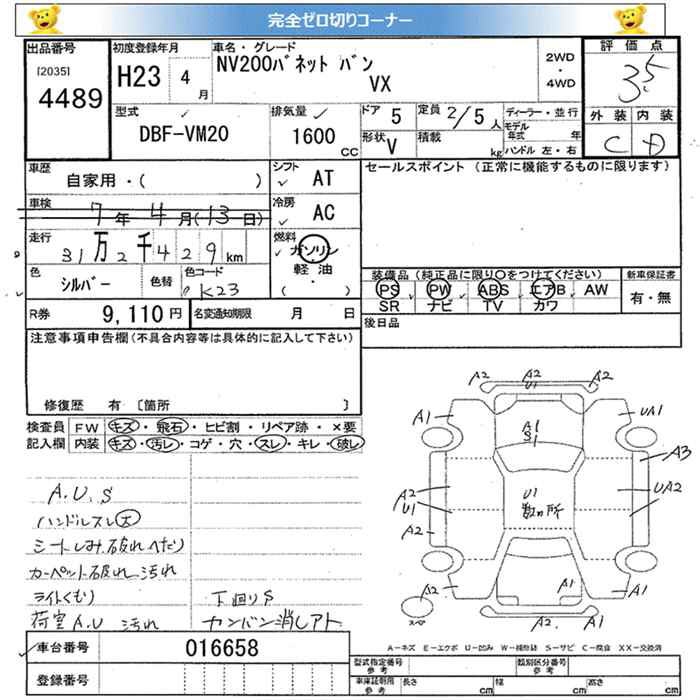 完全ゼロ切りコーナー
出品番号
[2035]
4489
初度登録年月
H23 4 月
車名・グレード
NV200バネット バン
VX
2WD
・
4WD
評価点
3.5
外装 内装
C D
型式
DBF-VM20
排気量
1600 cc
ドア 5
形状 V
定員 2/5 人
積載 kg
ディーラー・並行
モデル年式 年
ハンドル 左・右
車歴
自家用・( )
シフト AT
セールスポイント (正常に機能するものに限ります)
車検
7年4月(13日)
冷房 AC
走行
31万2千429km
燃料
ガソリン
軽油
・
( )
色
シルバー
色替
色コード
K23
装備品(純正品に限り○をつけてください)
PS PW ABS エアB AW
SR ナビ TV カワ
新車保証書
有・無
R券 9,110円
名変通知期限 月 日
後日品
注意事項申告欄(不具合内容等は具体的に記入して下さい)
修復歴 有 〔箇所 〕
検査員記入欄
FW キズ・飛石・ヒビ割・リペア跡・×要
内装 キズ・汚レ・コゲ・穴・スレ・キレ・破レ
A.U.S
ハンドルスレ大
シートしみ破れへたり
カーペット破れ汚れ
ライトくもり
荷室A.U 汚れ
下廻りS
カンバン消しアト
A2 A2 A2
U1
A1 UA1
A1
S1
A3
A2
U1
U1
数ヶ所
UA2
A2
A2 A1 A1
スペア
A2 A1
A-キズ E-エクボ U-凹み W-補修跡 S-サビ C-腐食 XX-交換済
車台番号 016658
登録番号
型式指定番号 参考
類別区分番号 参考
車庫証明用 参考
長さ cm 幅 cm 高さ cm